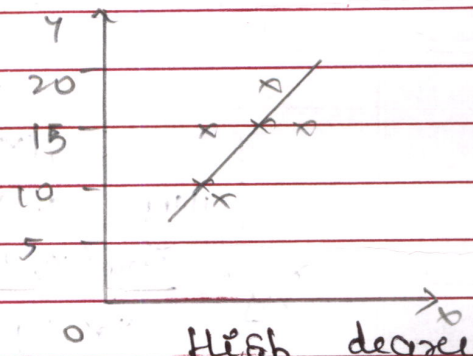 Y
20
15
10
5
0
x
High degree